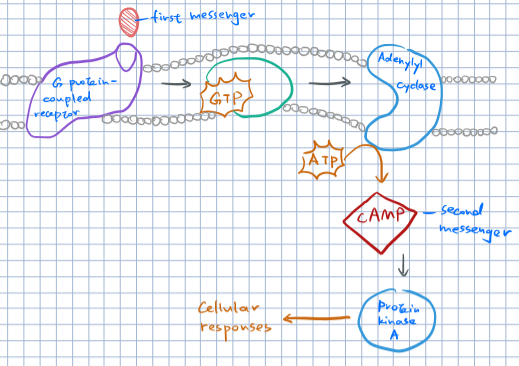 first messenger
G protein-
coupled
receptor
GTP
Adenylyl
cyclase
ATP
cAMP
second
messenger
Protein
kinase
A
Cellular
responses